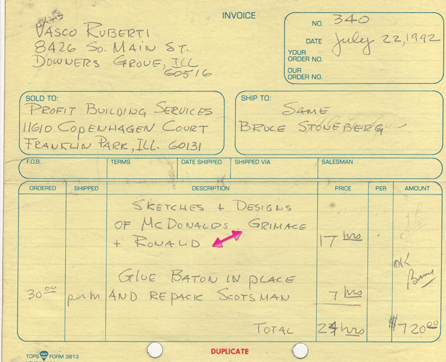 INVOICE
VASCO RUBERTI
8426 SO. MAIN ST.
DOWNERS GROVE, ILL
60516
NO. 340
DATE July 22, 1992
YOUR ORDER NO.
OUR ORDER NO.
SOLD TO:
PROFIT BUILDING SERVICES
11610 COPENHAGEN COURT
FRANKLIN PARK, ILL. 60131
SHIP TO:
SAME
BRUCE STONEBERG
F.O.B. TERMS DATE SHIPPED SHIPPED VIA SALESMAN
ORDERED SHIPPED DESCRIPTION PRICE PER AMOUNT
SKETCHES + DESIGNS
OF McDONALDS, GRIMACE
+ RONALD 17 hrs
OK
GLUE BATON IN PLACE
30.00 per hr AND REPACK SCOTSMAN 7 hrs
TOTAL 24 hrs $720.00
TOPS FORM 3813
DUPLICATE